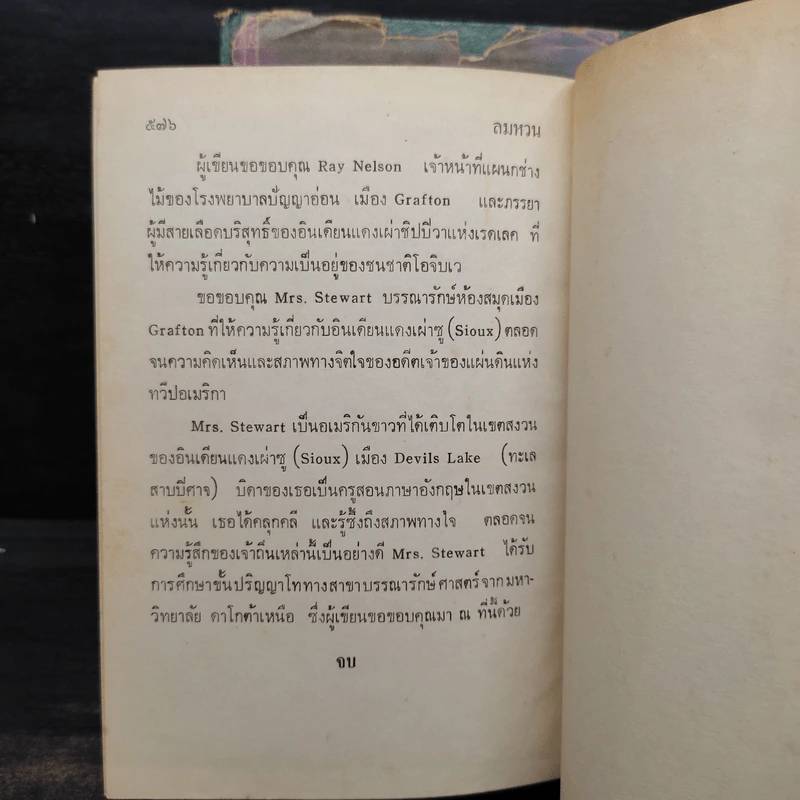 ๕๗๖ ลมหวน
ผู้เขียนขอขอบคุณ Ray Nelson เจ้าหน้าที่แผนกช่าง
ไม้ของโรงพยาบาลปัญญาอ่อน เมือง Grafton และภรรยา
ผู้มีสายเลือดบริสุทธิ์ของอินเดียนแดงเผ่าชิปปีวาแห่งเรดเลค ที่
ให้ความรู้เกี่ยวกับความเป็นอยู่ของชนชาติโอจิบเว
ขอขอบคุณ Mrs. Stewart บรรณารักษ์ห้องสมุดเมือง
Grafton ที่ให้ความรู้เกี่ยวกับอินเดียนแดงเผ่าซู (Sioux) ตลอด
จนความคิดเห็นและสภาพทางจิตใจของอดีตเจ้าของแผ่นดินแห่ง
ทวีปอเมริกา
Mrs. Stewart เป็นอเมริกันขาวที่ได้เติบโตในเขตสงวน
ของอินเดียนแดงเผ่าซู (Sioux) เมือง Devils Lake (ทะเล
สาบปีศาจ) บิดาของเธอเป็นครูสอนภาษาอังกฤษในเขตสงวน
แห่งนั้น เธอได้คลุกคลี และรู้ซึ้งถึงสภาพทางใจ ตลอดจน
ความรู้สึกของเจ้าถิ่นเหล่านี้เป็นอย่างดี Mrs. Stewart ได้รับ
การศึกษาขั้นปริญญาโททางสาขาบรรณารักษ์ศาสตร์จากมหา-
วิทยาลัย ดาโกต้าเหนือ ซึ่งผู้เขียนขอขอบคุณมา ณ ที่นี้ด้วย
จบ